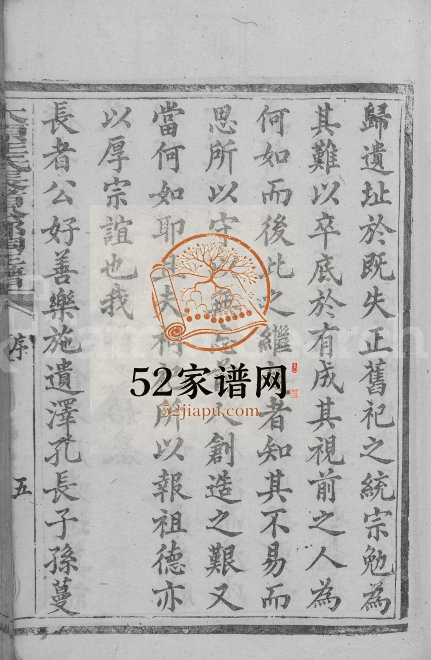 歸遺址於既失正舊祀之統宗勉為
其難以卒底於有成其視前之人為
何如而後此之繼者知其不易而
思所以守創造之艱又
當何如耶且夫所以報祖德亦
以厚宗誼也我
長者公好善樂施遺澤孔長子孫蔓
序
五
52家谱网
52jiapu.com